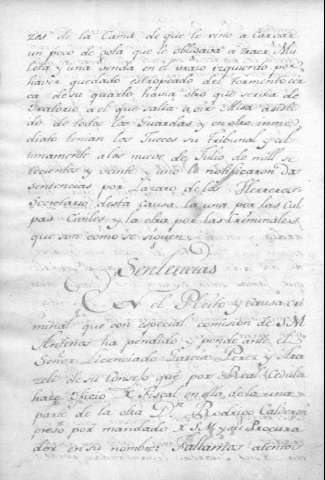 zes de la Cama de que le vino a Cargar
un poco de gota que le obligava a traer Mu
leta y una venda en el brazo izquierdo por
haver quedado estropeado del tormento cer
ca de su quarto havia otro que servia de
Oratorio a el que salia a oir Misa asisti
do de todos los Guardas y en otro inme
diato tenian los Jueces su Tribunal y ul
timamente a los nueve de Julio de mill se
tecientos y veinte y uno le notificaron dos
sentencias por Lazaro de los Herreros
Secretario desta causa la una por las Cul
pas Civiles y la otra por las Criminales,
que son como se siguen.
Sentencias
En el Pleito y causa cri
minal que con especial comision de S.M.
havemos ha pendido y pende ante el
Señor Licenciado Garcia Perez y Ara
ziel de su Consejo que por Real Cedula
hace Oficio de Fiscal en ella de la una
parte de la otra Dn. Rodrigo Calderon
preso por mandado de S.M. y su Procura
dor en su nombre: Fallamos atentos